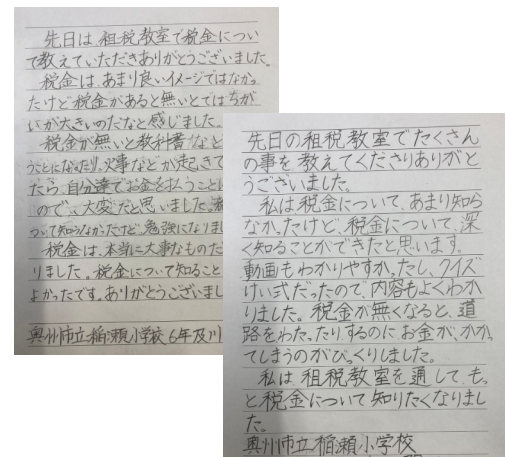 先日は、租税教室で税金につい
て教えていただきありがとうございました。
税金は、あまり良いイメージではなかっ
たけど税金があると無いとではちが
いが大きいのだなと感じました。
税金が無いと教科書など
うことになったり、火事などが起きて
たら、自分達でお金を払うことに
ので、大変だと思いました。
ついて知らなかったけど、勉強になりまし
税金は、本当に大事なものだ
りました。税金について知ること
よかったです。ありがとうございまし
奥州市立稲瀬小学校6年及川
先日の租税教室でたくさん
の事を教えてくださりありがと
うございました。
私は税金について、あまり知ら
なかったけど、税金について、深
く知ることができたと思います。
動画もわかりやすかったし、クイズ
けい式だったので、内容もよくわか
りました。税金が無くなると、道
路をわたったりするのにお金が、かかっ
てしまうのがびっくりしました。
私は、租税教室を通して、も
っと税金について知りたくなりまし
た。
奥州市立稲瀬小学校